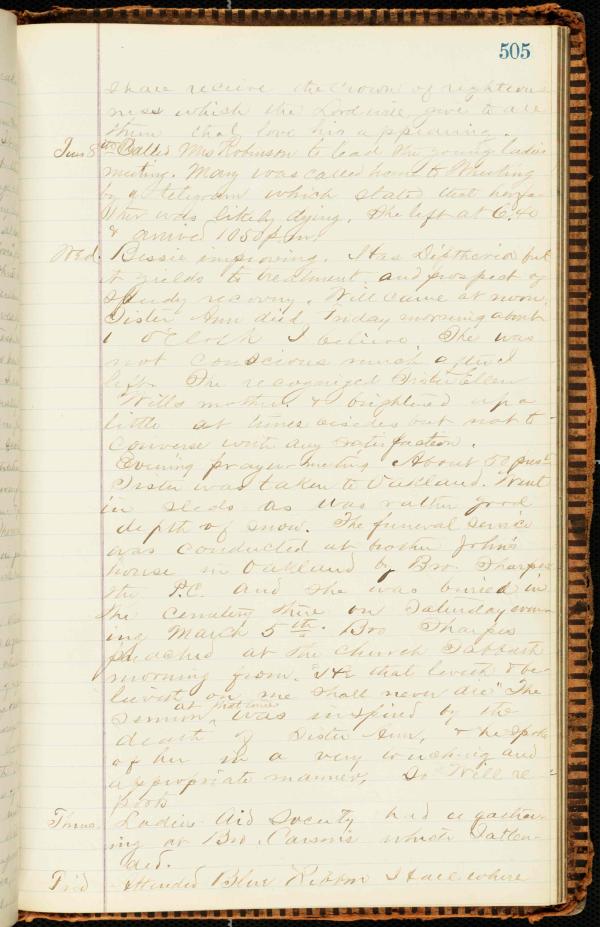 505
shall receive the crown of righteous=
ness which the Lord will give to all
them that love his appearing.
Tues 8th Called Mrs Robinson to lead the young ladies
meeting. Mary was called home to Wheeling
by a telegram which stated that her fa-
ther was likely dying. She left at 6.40
& arrived 10 50 p.m.
Wed. Bessie improving. Has Diptheria but
it yields to treatment and prospect of
speedy recovery. Will came at noon.
Sister Ann died Friday morning about
1 o'clock I believe. She was
not conscious much after I
left. She recognized Sister Ellen
Will's mother & brightened up a
little at times besides but not to
converse with any satisfaction.
Evening prayer meeting. About 50 pres-
Sister was taken to Oakland. Went
in sleds as was rather good
depth of snow. The funeral service
was conducted at brother John's
house in Oakland by Bro. Sharpes
the P.C. and she was buried in
the cemetery there on Saturday even-
ing March 5th. Bro Sharpes
preached at the church Sabbath
morning from. "He that liveth & be-
lieveth on me shall never die" The
sermon at that time was inspired by the
death of Sister Ann, & he spoke
of her in a very touching and
appropriate manner, So Will re=
ports
Thurs. Ladies Aid Society had a gather-
ing at Bro. Carson's which I atten-
ded.
Frid Attended Blue Ribbon Hall where